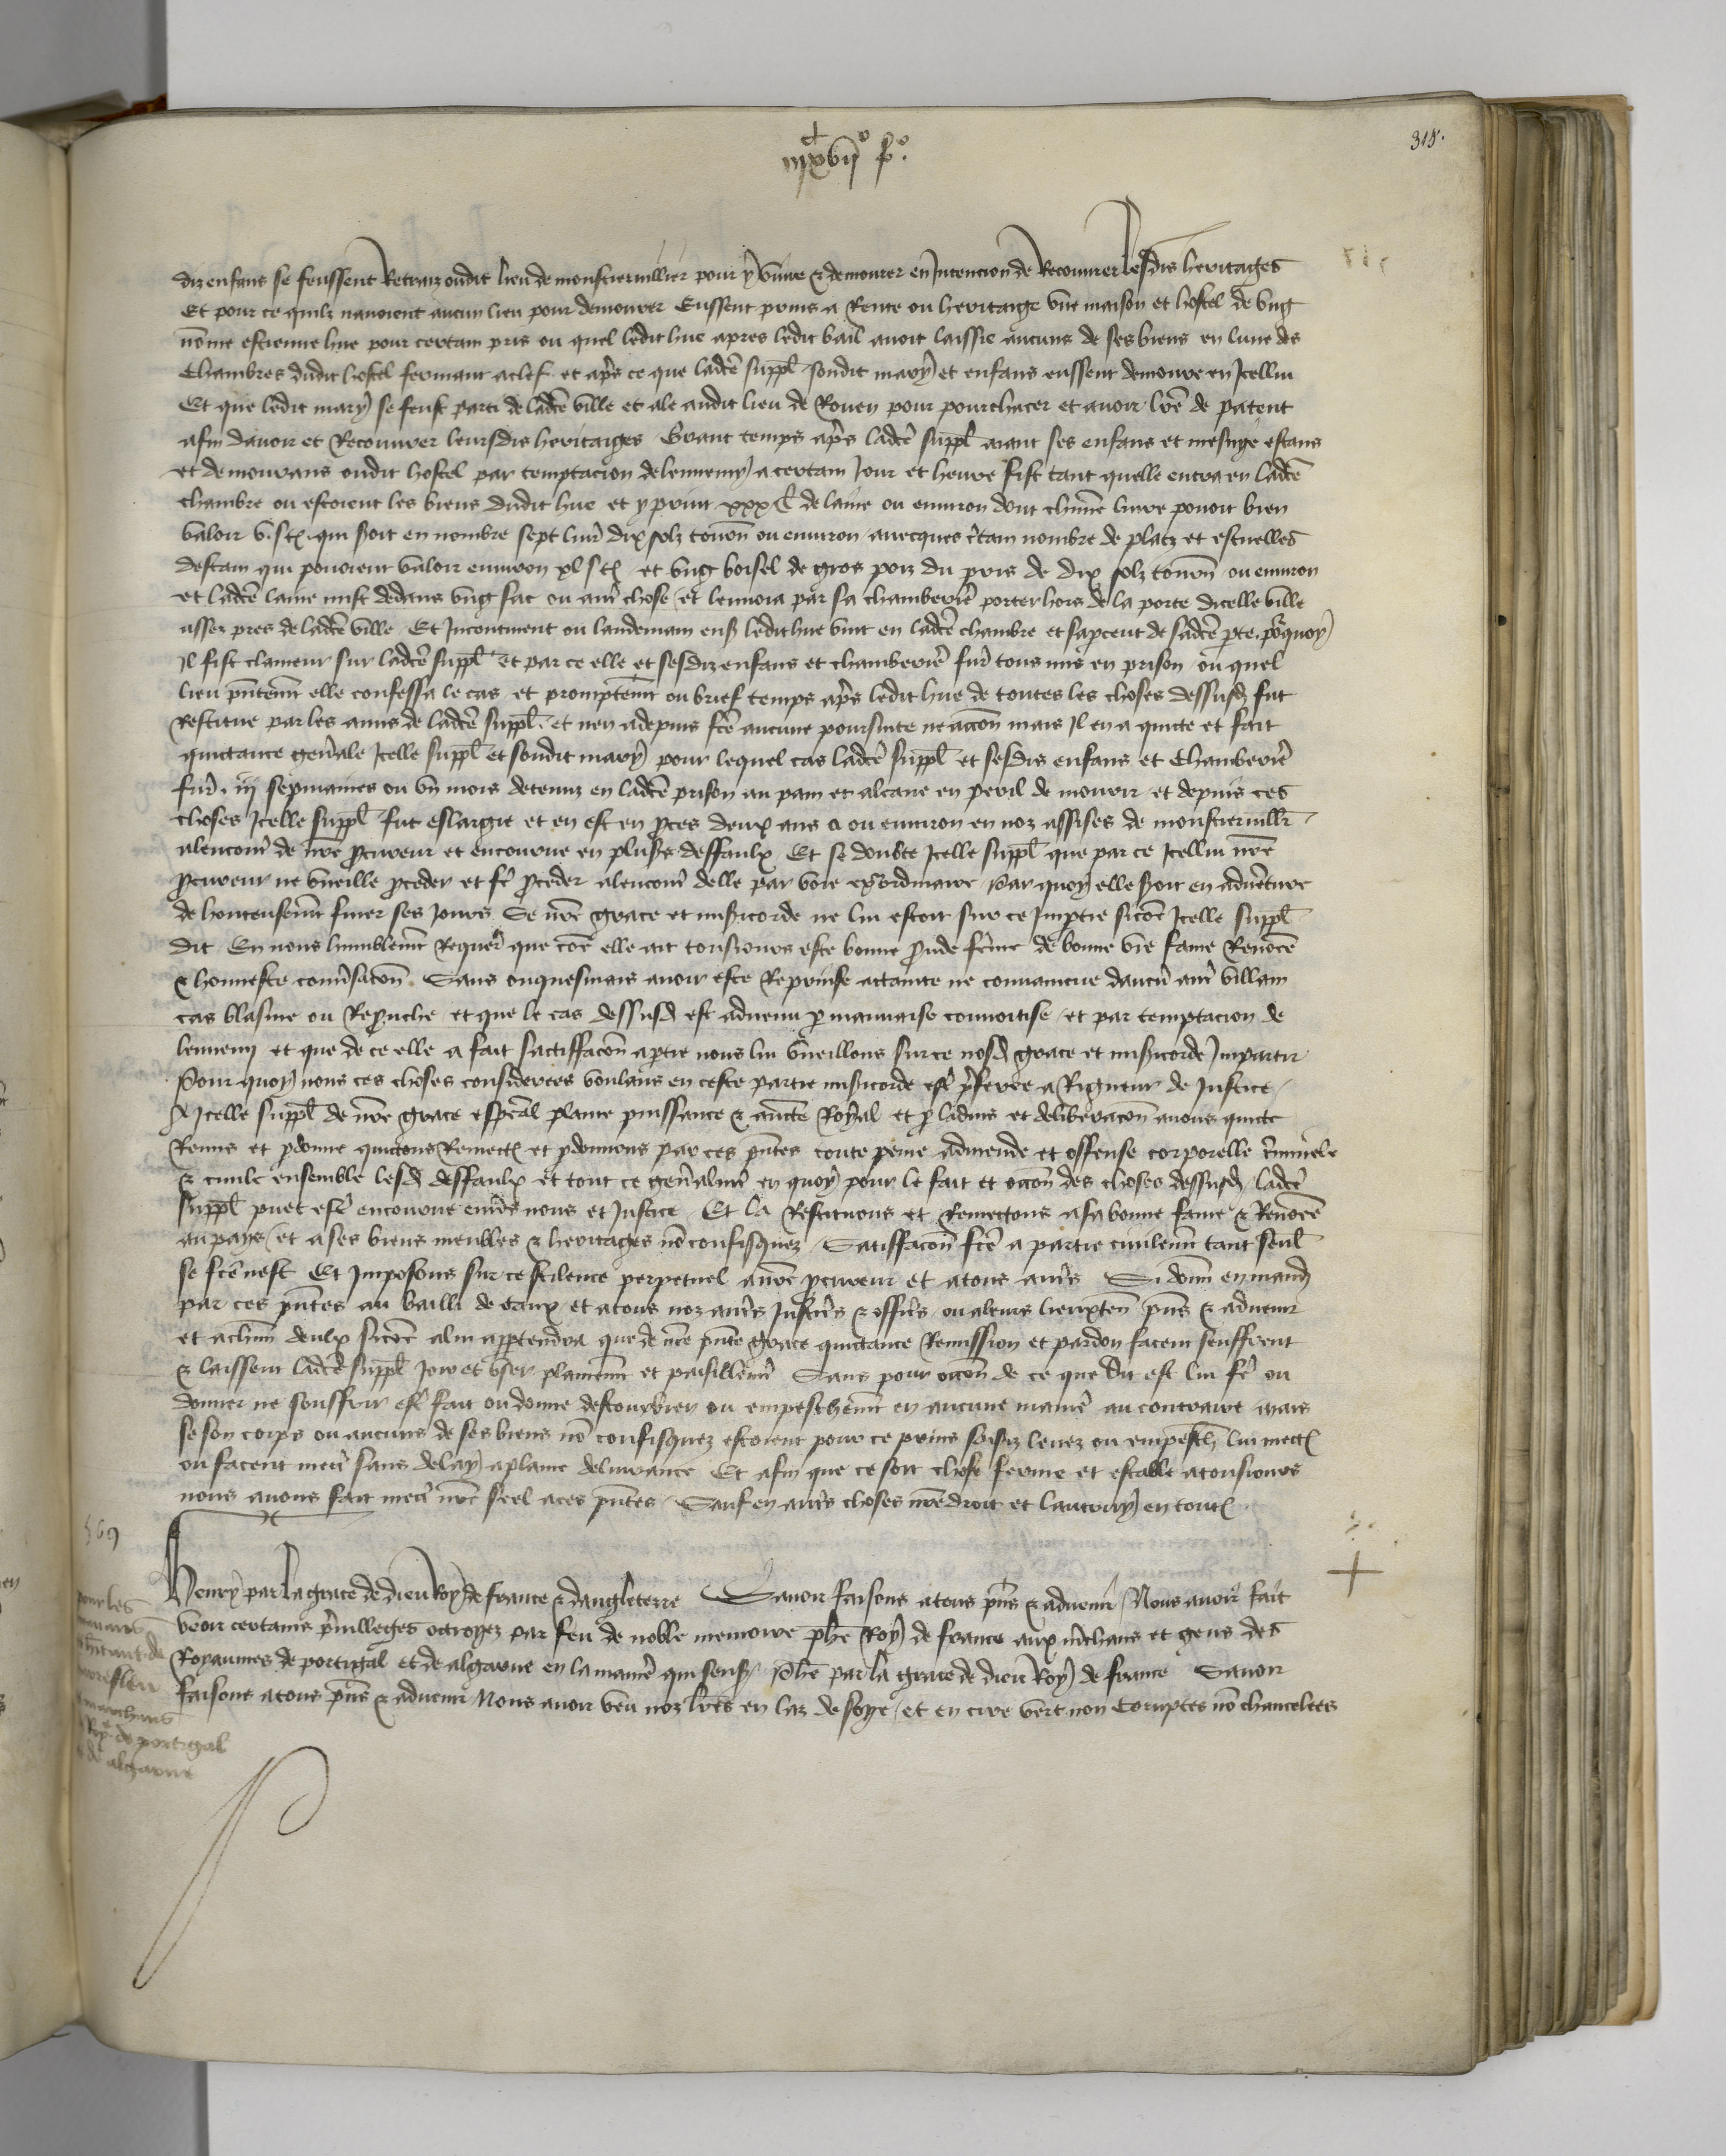 iijᶜxvijº fº.
315.
diz enfans se feussent Retraiz oudit lieu de monstierviller pour y vivre & demourer en Intencion de Recouvrer lesdis heritages
Et pour ce quilz navoient aucun lieu pour demourer Eussent prins a Rente ou heritaige une maison et hostel de ung
nōme estienne hue pour certain pris ou quel ledit hue apres ledit bail avoit laissie aucuns de ses biens en lune des
Chambres dudit hostel fermant a clef et ap̄s ce que ladcē suppl̄ sondit mary et enfans eussent demoure en Icellui
Et que ledit mary se feust parti de ladcē ville et ale audit lieu de Rouen pour pourchacer et avoir lr̄e de patent
afin davoir et Recouvrer leursdis heritaiges Grant temps ap̄s ladcē suppl̄ aiant ses enfans et mesnye estans
et demourans oudit hostel par temptacion de lennemy a certain Jour et heure fist tant quelle entra en ladcē
chambre ou estoient les biens dudit hue et y print xxx l̄ de laine ou environ dont chūne livre povoit bien
valoir v. s t. qui soit en nombre sept livr̄ dix solz tourn̄ ou environ avecques c̄tain nombre de platz et escuelles
destain qui povoient valoir environ xl s t et ung boisel de gros poiz du pris de dix solz tourn̄ ou environ
et ladcē laine mist dedans ung sac ou autr̄ chose et lenvoia par sa chamberiēr porter hors de la porte dicelle ville
assez pres de ladcē ville Et Incontinent ou landemain ens̄ ledit hue vint en ladcē chambre et sapceut de sadcē pte. pourquoy
Il fist clameur sur ladcē suppl̄ et par ce elle et sesdiz enfans et chamberiēr fur̄ tous mis en prison ou quel
lieu pn̄tem̄t elle confessa le cas et promptem̄t ou brief temps ap̄s ledit hue de toutes les choses dessusd fut
Restitue par les amis de ladcē suppl̄ et nen a depuis fc̄e aucune poursuite ne accōn mais Il en a quicte et fait
quictance gen̄ale Icelle suppl̄ et sondit mary pour lequel cas ladcē suppl̄ et sesdis enfans et Chamberiēr
fur̄ iij sepmaines ou un mois detenuz en ladcē prison au pain et a leaue en peril de mourir et depuis ces
choses Icelle suppl̄ fut eslargie et en est en pces deux ans a ou environ en noz assises de monstierviller̄
alencontr̄ de nr̄e pcureur et encourue en plus̄s deffaulx Et se doubte Icelle suppl̄ que par ce Icellui nr̄e
pcureur ne vueille pceder et fr̄ pceder alencontr̄ delle par voie ex̄ordinaire Par quoy elle soit en adventure
de honteusem̄t finer ses Jours Se nr̄e grace et mis̄icorde ne lui estoit sur ce Imptie sicōe Icelle suppl̄
dit En nous humblem̄t Requer̄ que cōe elle ait tousjours este bonne prude fem̄e de bonne vie fame Renōēe
& honneste conv̄sacōn Sans onquesmais avoir este Reprinse attainte ne convaincue daucun autr̄ villain
cas blasme ou Reprouche et que le cas dessusd est advenu p mauvaise convoitise et par temptacion de
lennemy et que de ce elle a fait satisfacōn a ptie nous lui vueillons sur ce nosd grace et mis̄icorde Impartir
Pour quoy nous ces choses considerees voulans en ceste partie mis̄icorde estr̄ p̄feree a Rigueur de Justice
A Icelle suppl̄ de nr̄e grace espc̄al plaine puissance & auctē Royal et p ladvis et deliberacōn avons quicte
Remis et pdonne quictons Remect et pdonnons par ces pn̄tes toute peine admende et offense corporelle c̄iminele
& civile ensemble lesd deffaulx et tout ce gen̄alm̄t en quoy pour le fait et occōn des choses dessusd ladcē
suppl̄ puet estr̄ encourue env̄s nous et Justice Et la Restituons et Remectons a sa bonne fame & Renōēe
au pays et a ses biens meubles & heritages nō confisquez Satisfacōn fc̄e a partie civilem̄t tant seul̄
se fc̄e nest Et Imposons sur ce silence perpetuel a nr̄e pcureur et a tous autr̄s Si donn̄ en mand
par ces pn̄tes au bailli de caux et a tous noz autr̄s Justic̄s & offic̄s ou a leurs lieuxten̄ pn̄s & advenir
et a chūn deulx sicōe a lui apptendra que de nr̄e pn̄te grace quictance Remission et pardon facent seuffrent
& laissent ladcē suppl̄ Joir et user plainem̄t et paisiblem̄t Sans pour occōn de ce que dit est lui fr̄ ou
donner ne souffrir estr̄ fait ou donne destourbier ou empeschem̄t en aucune manier̄ au contraire mais
se son corps ou aucuns de ses biens nō confisquez estoient pour ce prins saisiz levez ou empesch lui mect
ou facent mectr̄ sans delay a plaine delivrance Et afin que ce soit chose ferme et estable a tousjours
nous avons fait mectr̄ nr̄e seel a ces pn̄tes Sauf en autr̄s choses nr̄e droit et lautruy en tout
569
Henry par la grace de dieu Roy de france & dangleterre Savoir faisons a tous pn̄s & advenir Nous avoir fait
veoir certains p̄villeges octroyez par feu de noble memoire phē Roy de france aux m̄chans et gens des
Royaumes de portigal et de algarne en la manier̄ qui sensᵗ Phē par la grace de dieu Roy de france Savoir
faisons a tous pn̄s & advenir Nous avoir veu noz lr̄es en laz de soye et en cire vert non Corruptes nō chancelees
pour les
de
harefleu
marchans
de portigal
de algarne